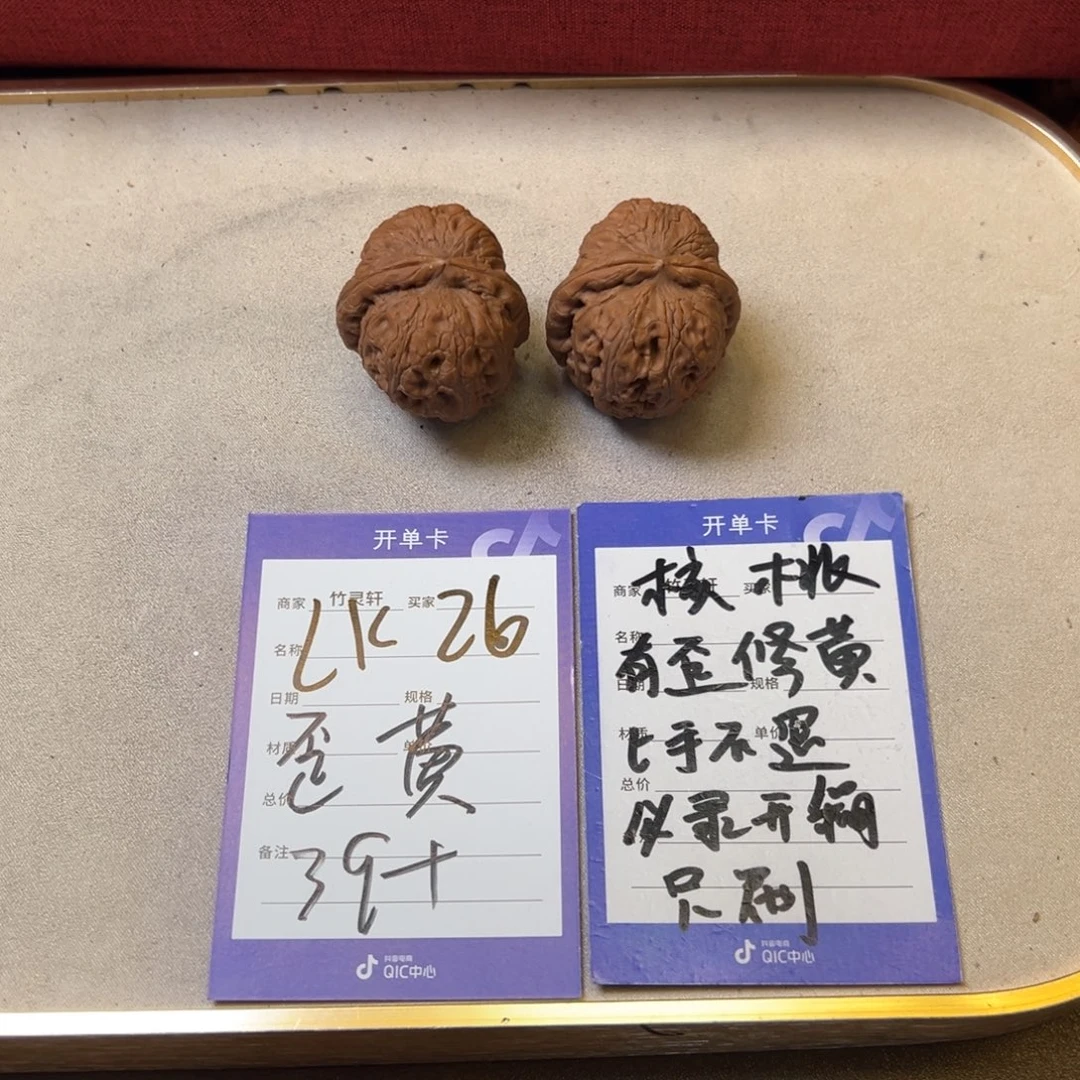 开单卡
商家 竹灵轩 买家
LK 26
名称
日期 规格
歪 黄
材质 单价
总价
39+
备注
抖音电商
QIC中心
开单卡
商家 买家
核桃
名称
有歪修黄
日期 规格
上手不退
材质 单价
总价
必录开箱
只刷
抖音电商
QIC中心